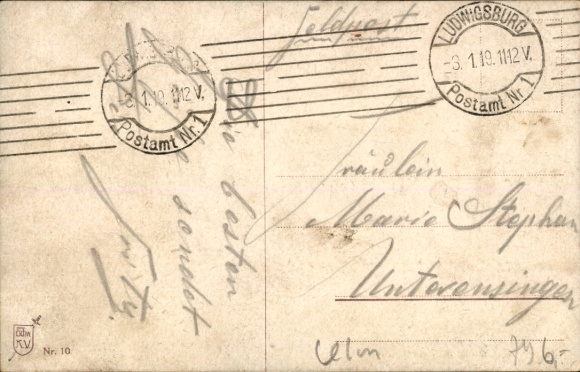 Feldpost
LUDWIGSBURG
-3. 1. 18. 11-12 V.
Postamt Nr. 1
-3. 1. 18. 11-12 V.
Postamt Nr. 1
Die besten
sendet
Fritz.
Fräulein
Marie Stephan
Unterensingen
Ulm
Nr. 10